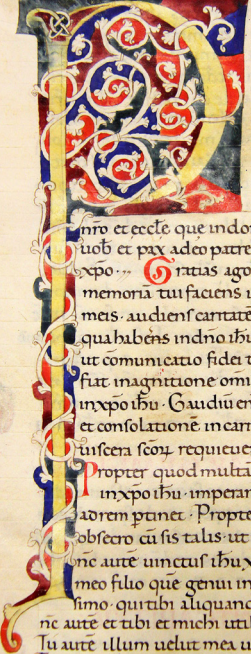 P
nr̄o et eccl̄e que in do
uob̄ et pax a deo patre
xp̄o · Gratias ago
memoriā tui faciens i
meis · audiens caritatē
qua habens in dn̄o ihū
ut cōmunicatio fidei t
fiat in agnitione om̄i
in xp̄o ihū · Gaudiū en
et consolationē in cari
uiscera sc̄oꝝ requieue
Propter quod multā
in xp̄o ihū · imperan
ad rem ꝑtinet · Propte
obsecro cū sis talis · ut
nc autē uinctus ihū x
meo filio quē genui in
simo · qui tibi aliquand
nc autē et tibi et michi util
Tu autē illum uelut mea u